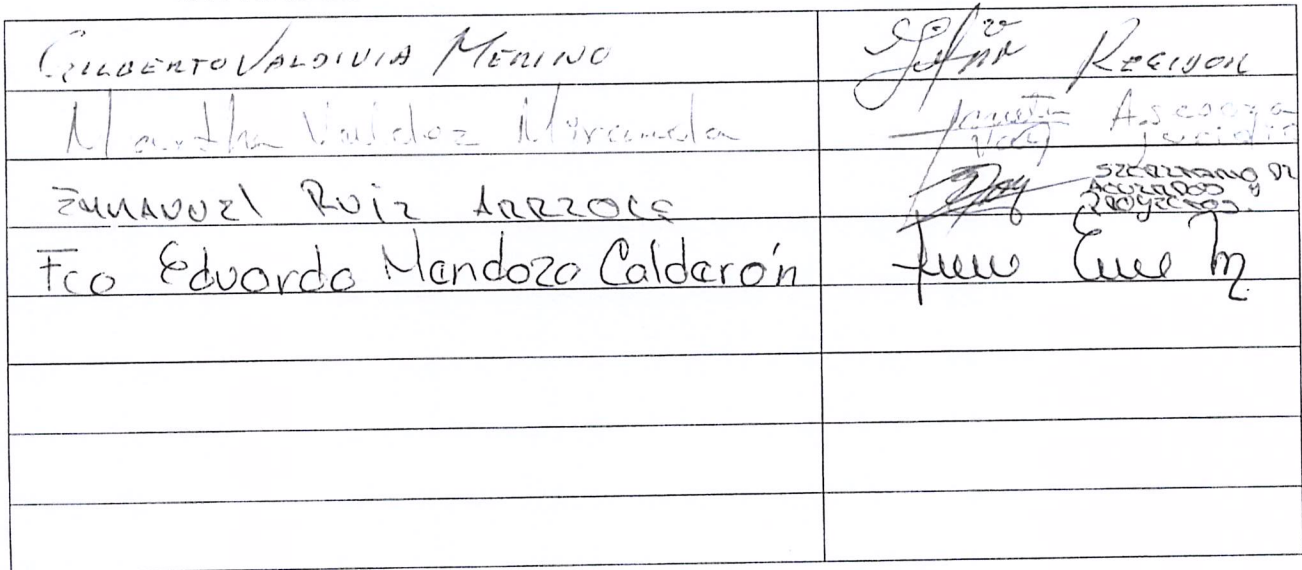 GILBERTO VALDIVIA MERINO REGIDOR
Martha Valdez Miramela Asesora
Juridic
EMMANUEL RUIZ ARREOLA SECRETARIO DE
ACUERDOS Y
PROYECTOS.
Fco Eduardo Mendoza Calderón